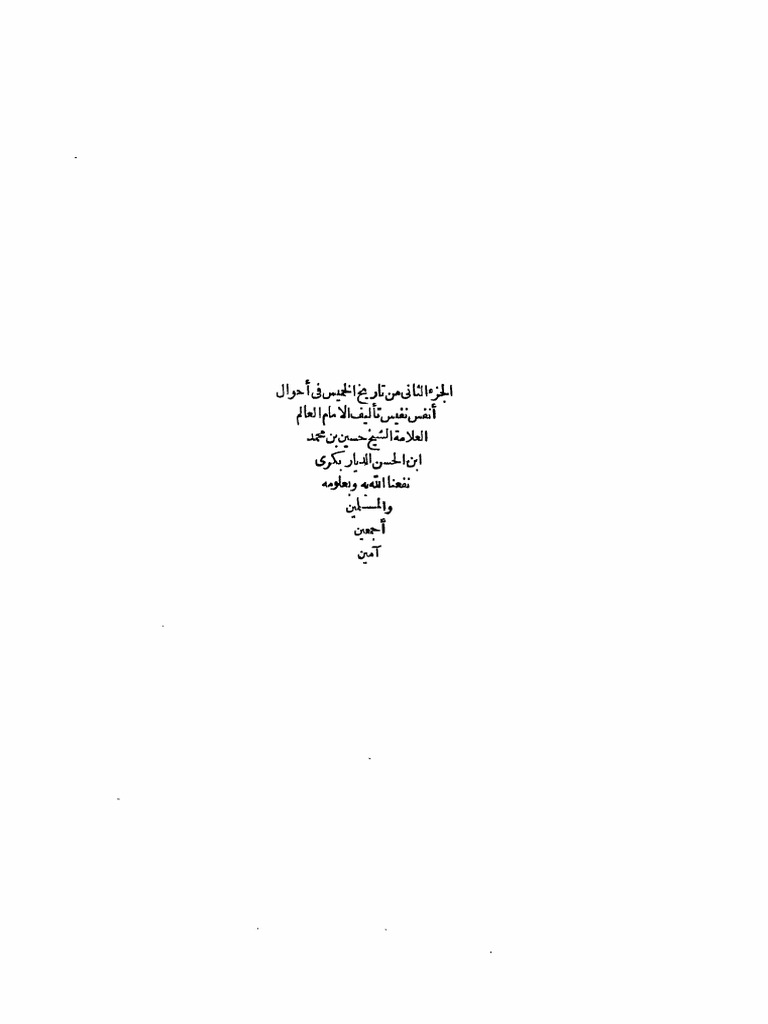 الجزء الثانى من تاريخ الخميس فى أحوال
أنفس نفيس تأليف الامام العالم
العلامة الشيخ حسين بن محمد
ابن الحسن الديار بكرى
نفعنا الله به وبعلومه
والمسلمين
أجمعين
آمين